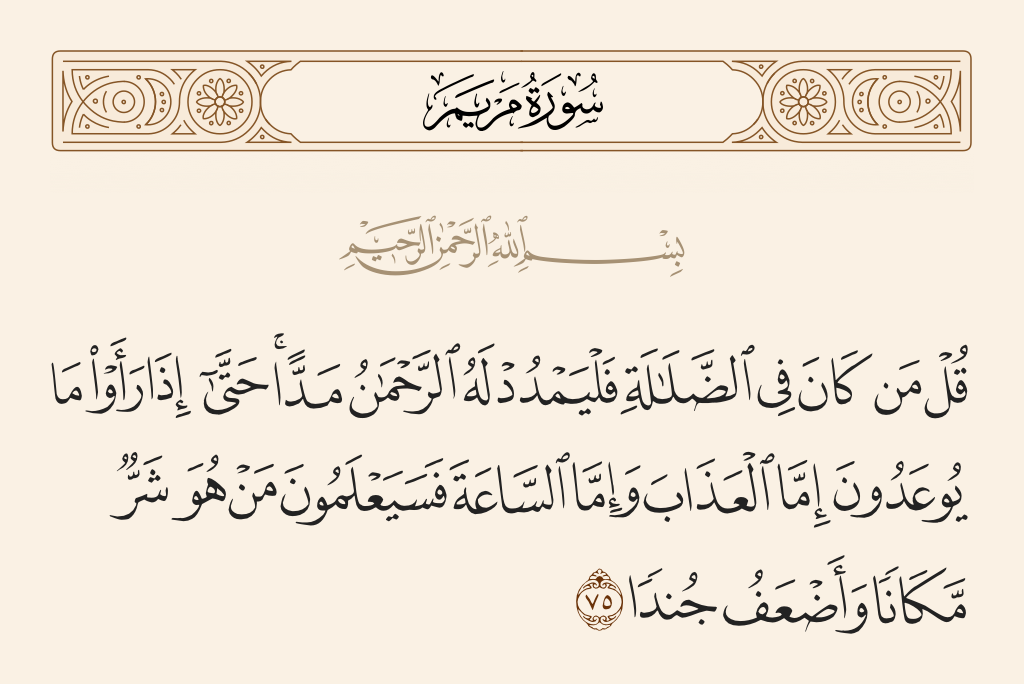 سُورَةُ مَرْيَمَ
بِسْمِ ٱللَّهِ ٱلرَّحْمَٰنِ ٱلرَّحِيمِ
قُلْ مَن كَانَ فِى ٱلضَّلَٰلَةِ فَلْيَمْدُدْ لَهُ ٱلرَّحْمَٰنُ مَدًّا ۚ حَتَّىٰٓ إِذَا رَأَوْا۟ مَا
يُوعَدُونَ إِمَّا ٱلْعَذَابَ وَإِمَّا ٱلسَّاعَةَ فَسَيَعْلَمُونَ مَنْ هُوَ شَرٌّ
مَّكَانًا وَأَضْعَفُ جُندًا ٧٥